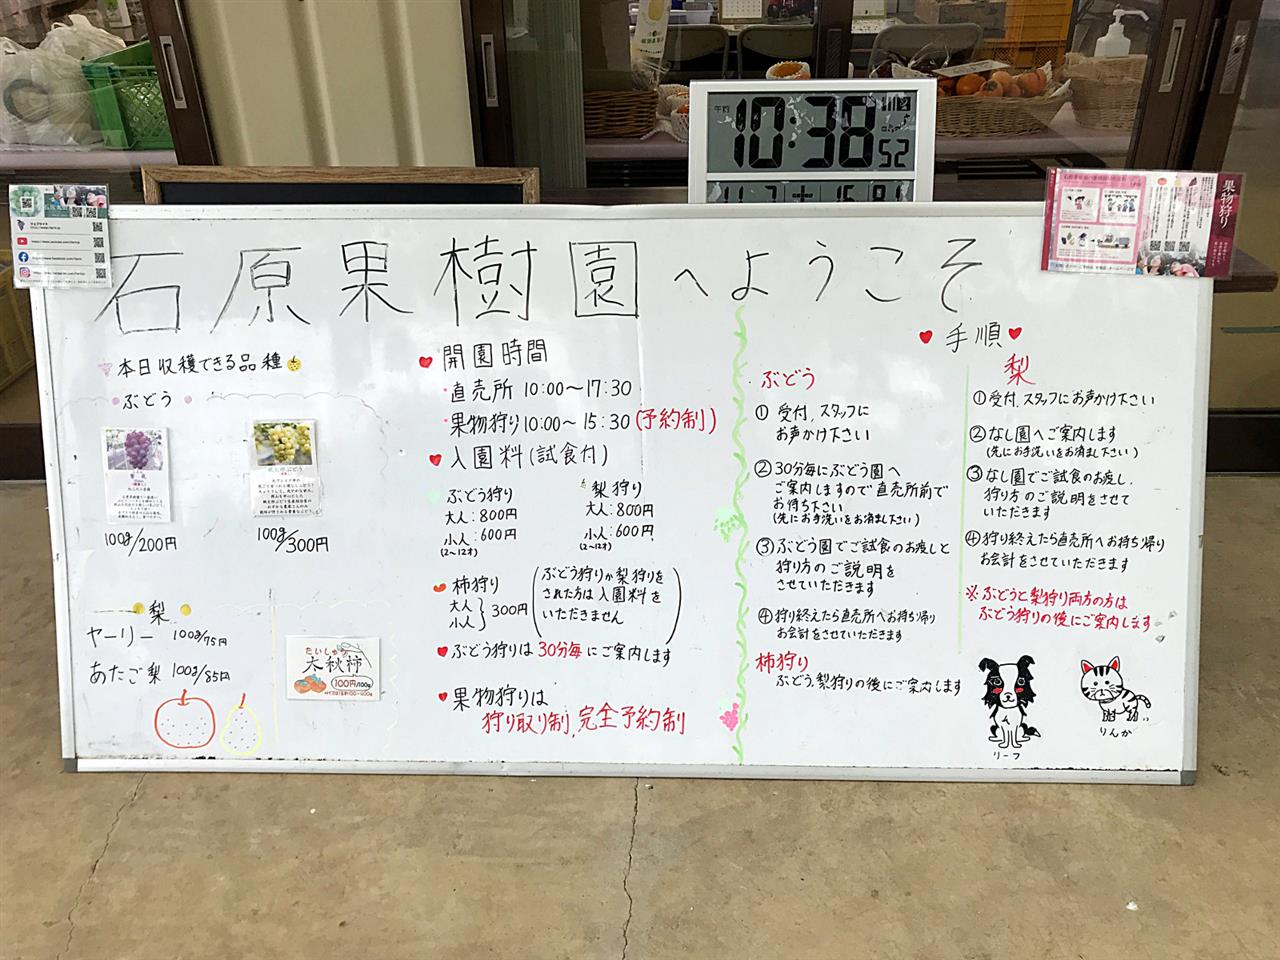 午前
10:38 52
11 7 土
果物狩り
石原果樹園へようこそ
本日収穫できる品種
ぶどう
100g/200円
100g/300円
梨
ヤーリー 100g/75円
あたご梨 100g/85円
たいしゅう
太秋柿
100円/100g
開園時間
・直売所 10:00〜17:30
・果物狩り 10:00〜15:30 (予約制)
入園料 (試食付)
ぶどう狩り
大人:800円
小人:600円
(2〜12才)
梨狩り
大人:800円
小人:600円
(2〜12才)
柿狩り
大人
小人
}300円
(ぶどう狩りか梨狩りを
された方は入園料を
いただきません)
ぶどう狩りは30分毎にご案内します
果物狩りは
狩り取り制、完全予約制
手順
ぶどう
① 受付、スタッフに
お声かけ下さい
② 30分毎にぶどう園へ
ご案内しますので直売所前で
お待ち下さい
(先にお手洗いをお済まし下さい)
③ ぶどう園でご試食のお渡しと
狩り方のご説明を
させていただきます
④ 狩り終えたら直売所へお持ち帰り
お会計をさせていただきます
柿狩り
ぶどう、梨狩りの後にご案内します
梨
① 受付、スタッフにお声かけ下さい
② なし園へご案内します
(先にお手洗いをお済まし下さい)
③ なし園でご試食のお渡し、
狩り方のご説明をさせて
いただきます
④ 狩り終えたら直売所へお持ち帰り
お会計をさせていただきます
※ ぶどうと梨狩り両方の方は
ぶどう狩りの後にご案内します
リーフ
りんか